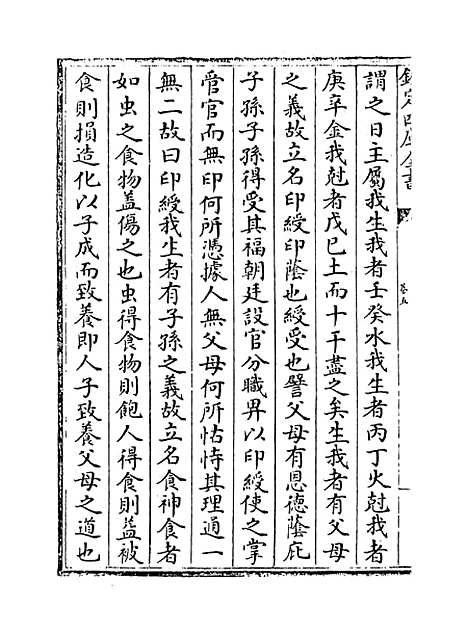 欽定四庫全書
卷五
謂之日主屬我生我者壬癸水我生者丙丁火尅我者
庚辛金我尅者戊巳土而十干盡之矣生我者有父母
之義故立名印綬印䕃也綬受也譬父母有恩德䕃庇
子孫子孫得受其福朝廷設官分職畀以印綬使之掌
管官而無印何所憑據人無父母何所怙恃其理通一
無二故曰印綬我生者有子孫之義故立名食神食者
如虫之食物盖傷之也虫得食物則飽人得食則益被
食則損造化以子成而致養即人子致養父母之道也